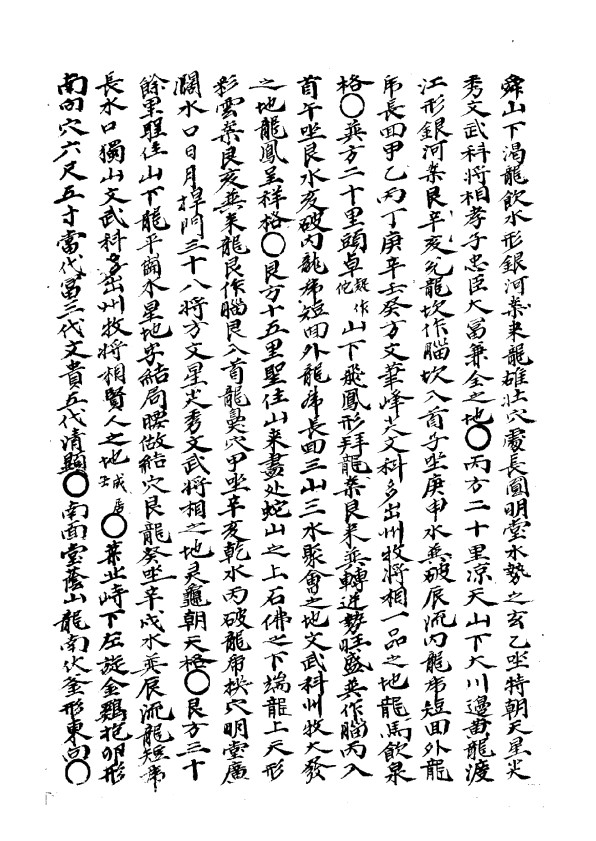 舜山下渴龍飲水形銀河案來龍雄壯穴處長圓明堂水勢之玄乙坐特朝天星尖
秀文武科將相孝子忠臣大富兼全之地〇丙方二十里凉天山下大川邊黃龍渡
江形銀河案艮辛亥兌龍坎作腦坎入首子坐庚申水巽破辰流內龍虎短回外龍
虎長回甲乙丙丁庚辛壬癸方文筆峰尖文科多出州牧將相一品之地龍馬飲泉
格〇巽方二十里頭卓疑作佗山下飛鳳形拜龍案艮來巽轉進勢旺盛巽作腦丙入
首午坐艮水亥破內龍虎短回外龍虎長回三山三水聚會之地文武科州牧大發
之地龍鳳呈祥格〇艮方十五里聖住山來盡处蛇山之上石佛之下端龍上天形
彩雲案艮亥巽來龍艮作腦艮入首龍鼻穴甲坐辛亥乾水丙破龍虎拱穴明堂廣
濶水口日月捍門三十八將方文星尖秀文武將相之地灵龜朝天格〇艮方三十
餘里聖住山下龍平崗水星地字結局腰做結穴艮龍癸坐辛戌水巽辰流龍短虎
長水口獨山文武科多出州牧將相賢人之地〇葉北峙下左旋金鷄抱卵形
南向穴六尺五寸當代富三代文貴五代清顯〇南面堂蔭山龍南伏釜形東向〇